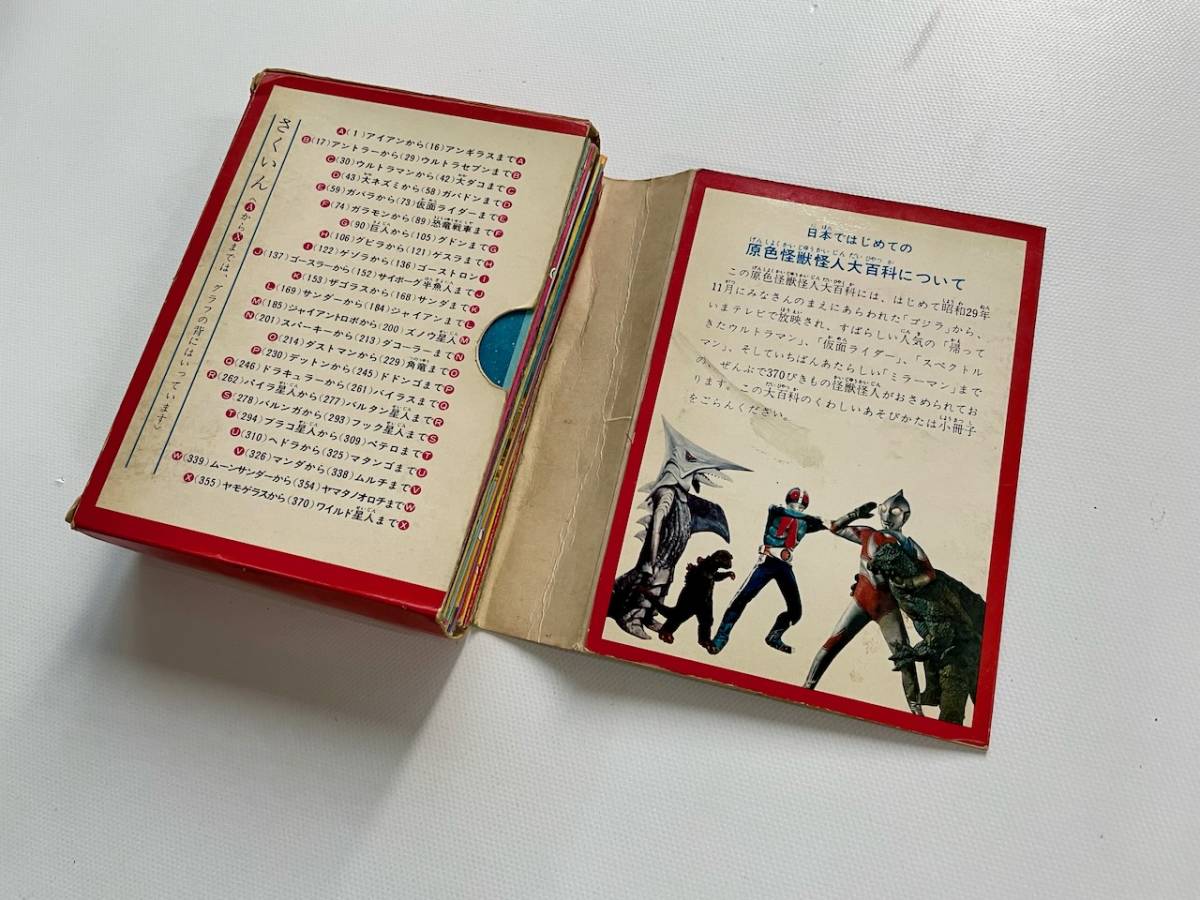 さくいん〈AからXまでは、グラフの背にはいっています〉
A(1)アイアンから(16)アンギラスまでA
B(17)アントラーから(29)ウルトラセブンまでB
C(30)ウルトラマンから(42)大ダコまでC
D(43)大ネズミから(58)ガバドンまでD
E(59)ガバラから(73)仮面ライダーまでE
F(74)ガラモンから(89)恐竜戦車までF
G(90)巨人から(105)グドンまでG
H(106)グビラから(121)ゲスラまでH
I(122)ゲゾラから(136)ゴーストロンI
J(137)ゴースラーから(152)サイボーグ半魚人までJ
K(153)ザゴラスから(168)サンダまでK
L(169)サンダーから(184)ジャイアンまでL
M(185)ジャイアントロボから(200)ズノウ星人M
N(201)スパーキーから(213)ダコーラーまでN
O(214)ダストマンから(229)角竜までO
P(230)デットンから(245)ドドンゴまでP
Q(246)ドラキュラーから(261)バイラスまでQ
R(262)バイラ星人から(277)バルタン星人までR
S(278)バルンガから(293)フック星人までS
T(294)ブラコ星人から(309)ペテロまでT
U(310)ヘドラから(325)マタンゴまでU
V(326)マンダから(338)ムルチまでV
W(339)ムーンサンダーから(354)ヤマタノオロチまでW
X(355)ヤモゲラスから(370)ワイルド星人までX
日本ではじめての
原色怪獣怪人大百科について
この原色怪獣怪人大百科には、はじめて昭和29年
11月にみなさんのまえにあらわれた「ゴジラ」から、
いまテレビで放映され、すばらしい人気の「帰って
きたウルトラマン」、「仮面ライダー」、「スペクトル
マン」、そしていちばんあたらしい「ミラーマン」まで
の、ぜんぶで370ぴきもの怪獣怪人がおさめられてお
ります。この大百科のくわしいあそびかたは小冊子
をごらんください。